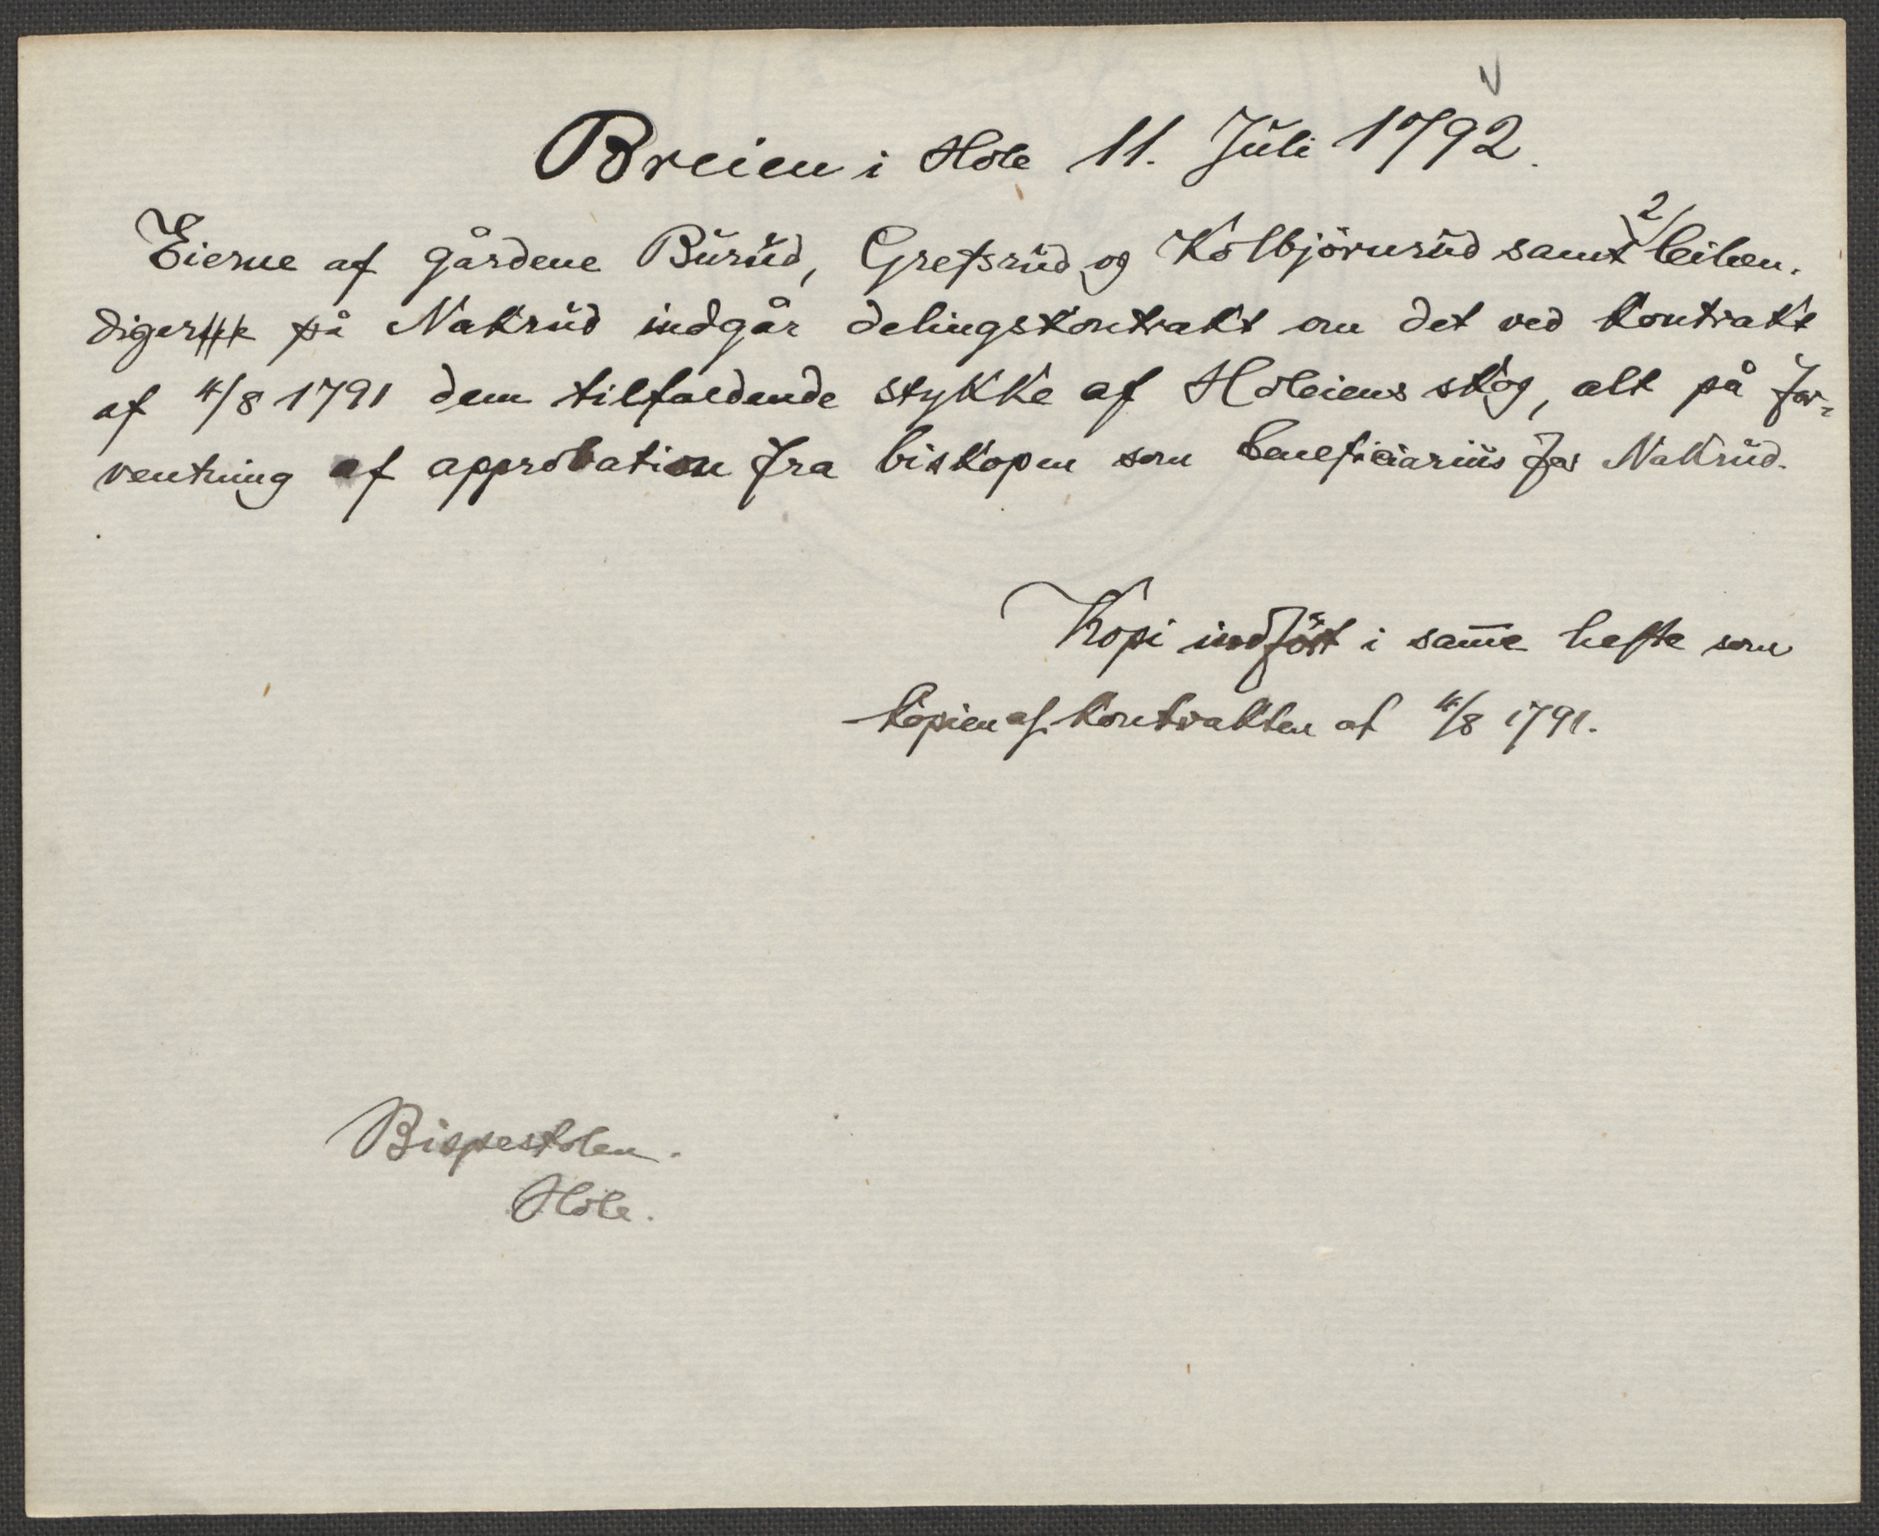 Breien i Hole 11. Juli 1792.
Eierne af gårdene Burud, Grefsrud og Kolbjörnrud samt 2 leilæn-
diger på Nakrud indgår delingskontrakt om det ved kontrakt
af 4/8 1791 dem tilfaldende stykke af Holeiens skog, alt på for-
ventning af approbation fra biskopen som beneficiarius for Nakrud.
Kopi indfört i samme hefte som
kopien af kontrakten af 4/8 1791.
Bispestolen.
Hole.